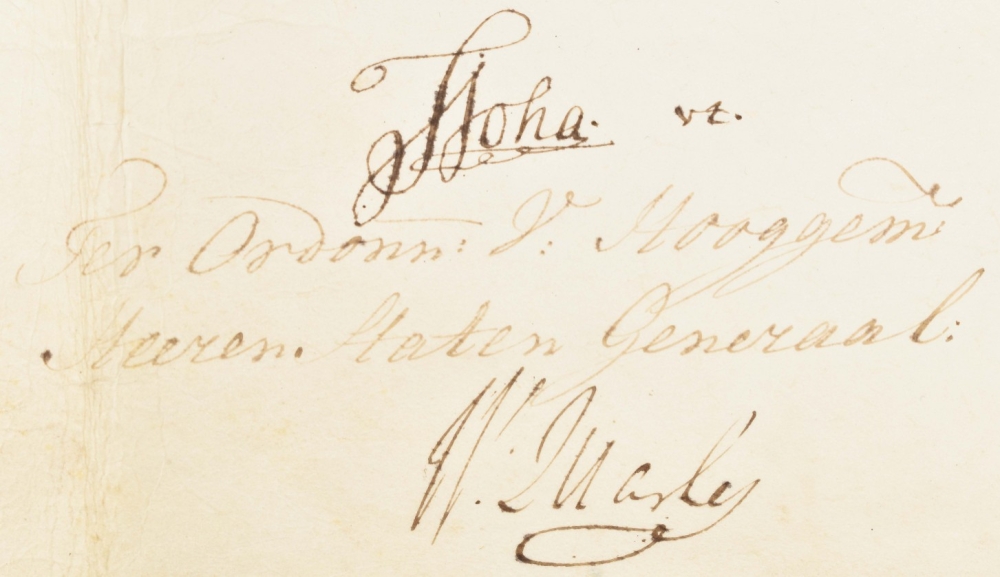 vt.
Ter Ordonn: V: Hooggem:
Heeren. Staten Generaal.
W. Quarles